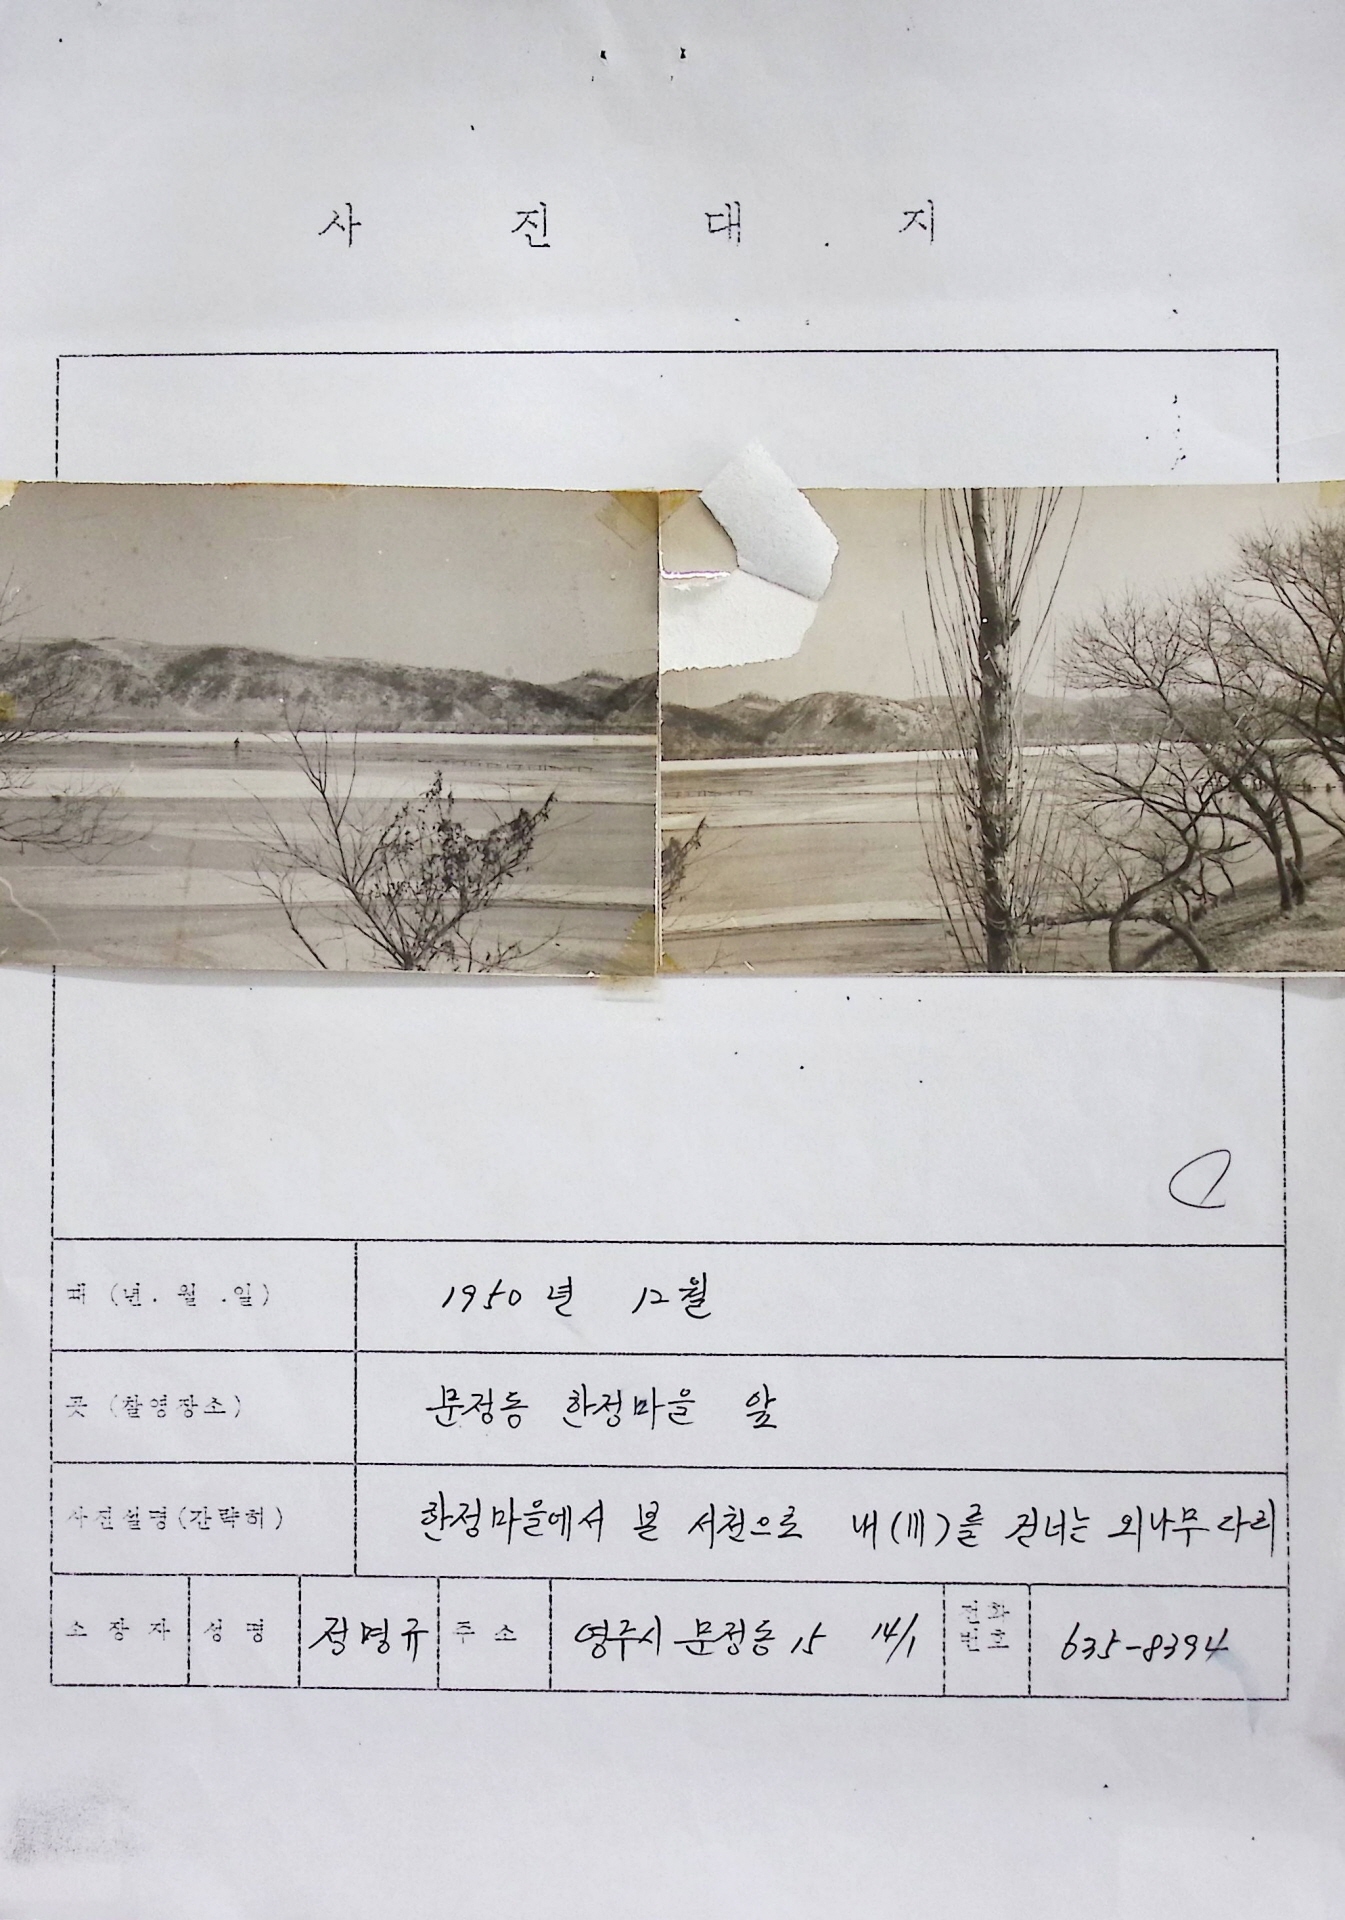 사 진 대 지
때 (년. 월 .일) 1950년 12월
곳 (촬영장소) 문정동 한정마을 앞
사진설명(간략히) 한정마을에서 본 서천으로 내(川)를 건너는 외나무다리
소 장 자 성 명 정명규 주 소 영주시 문정동 15 14/1 전화번호 635-8394